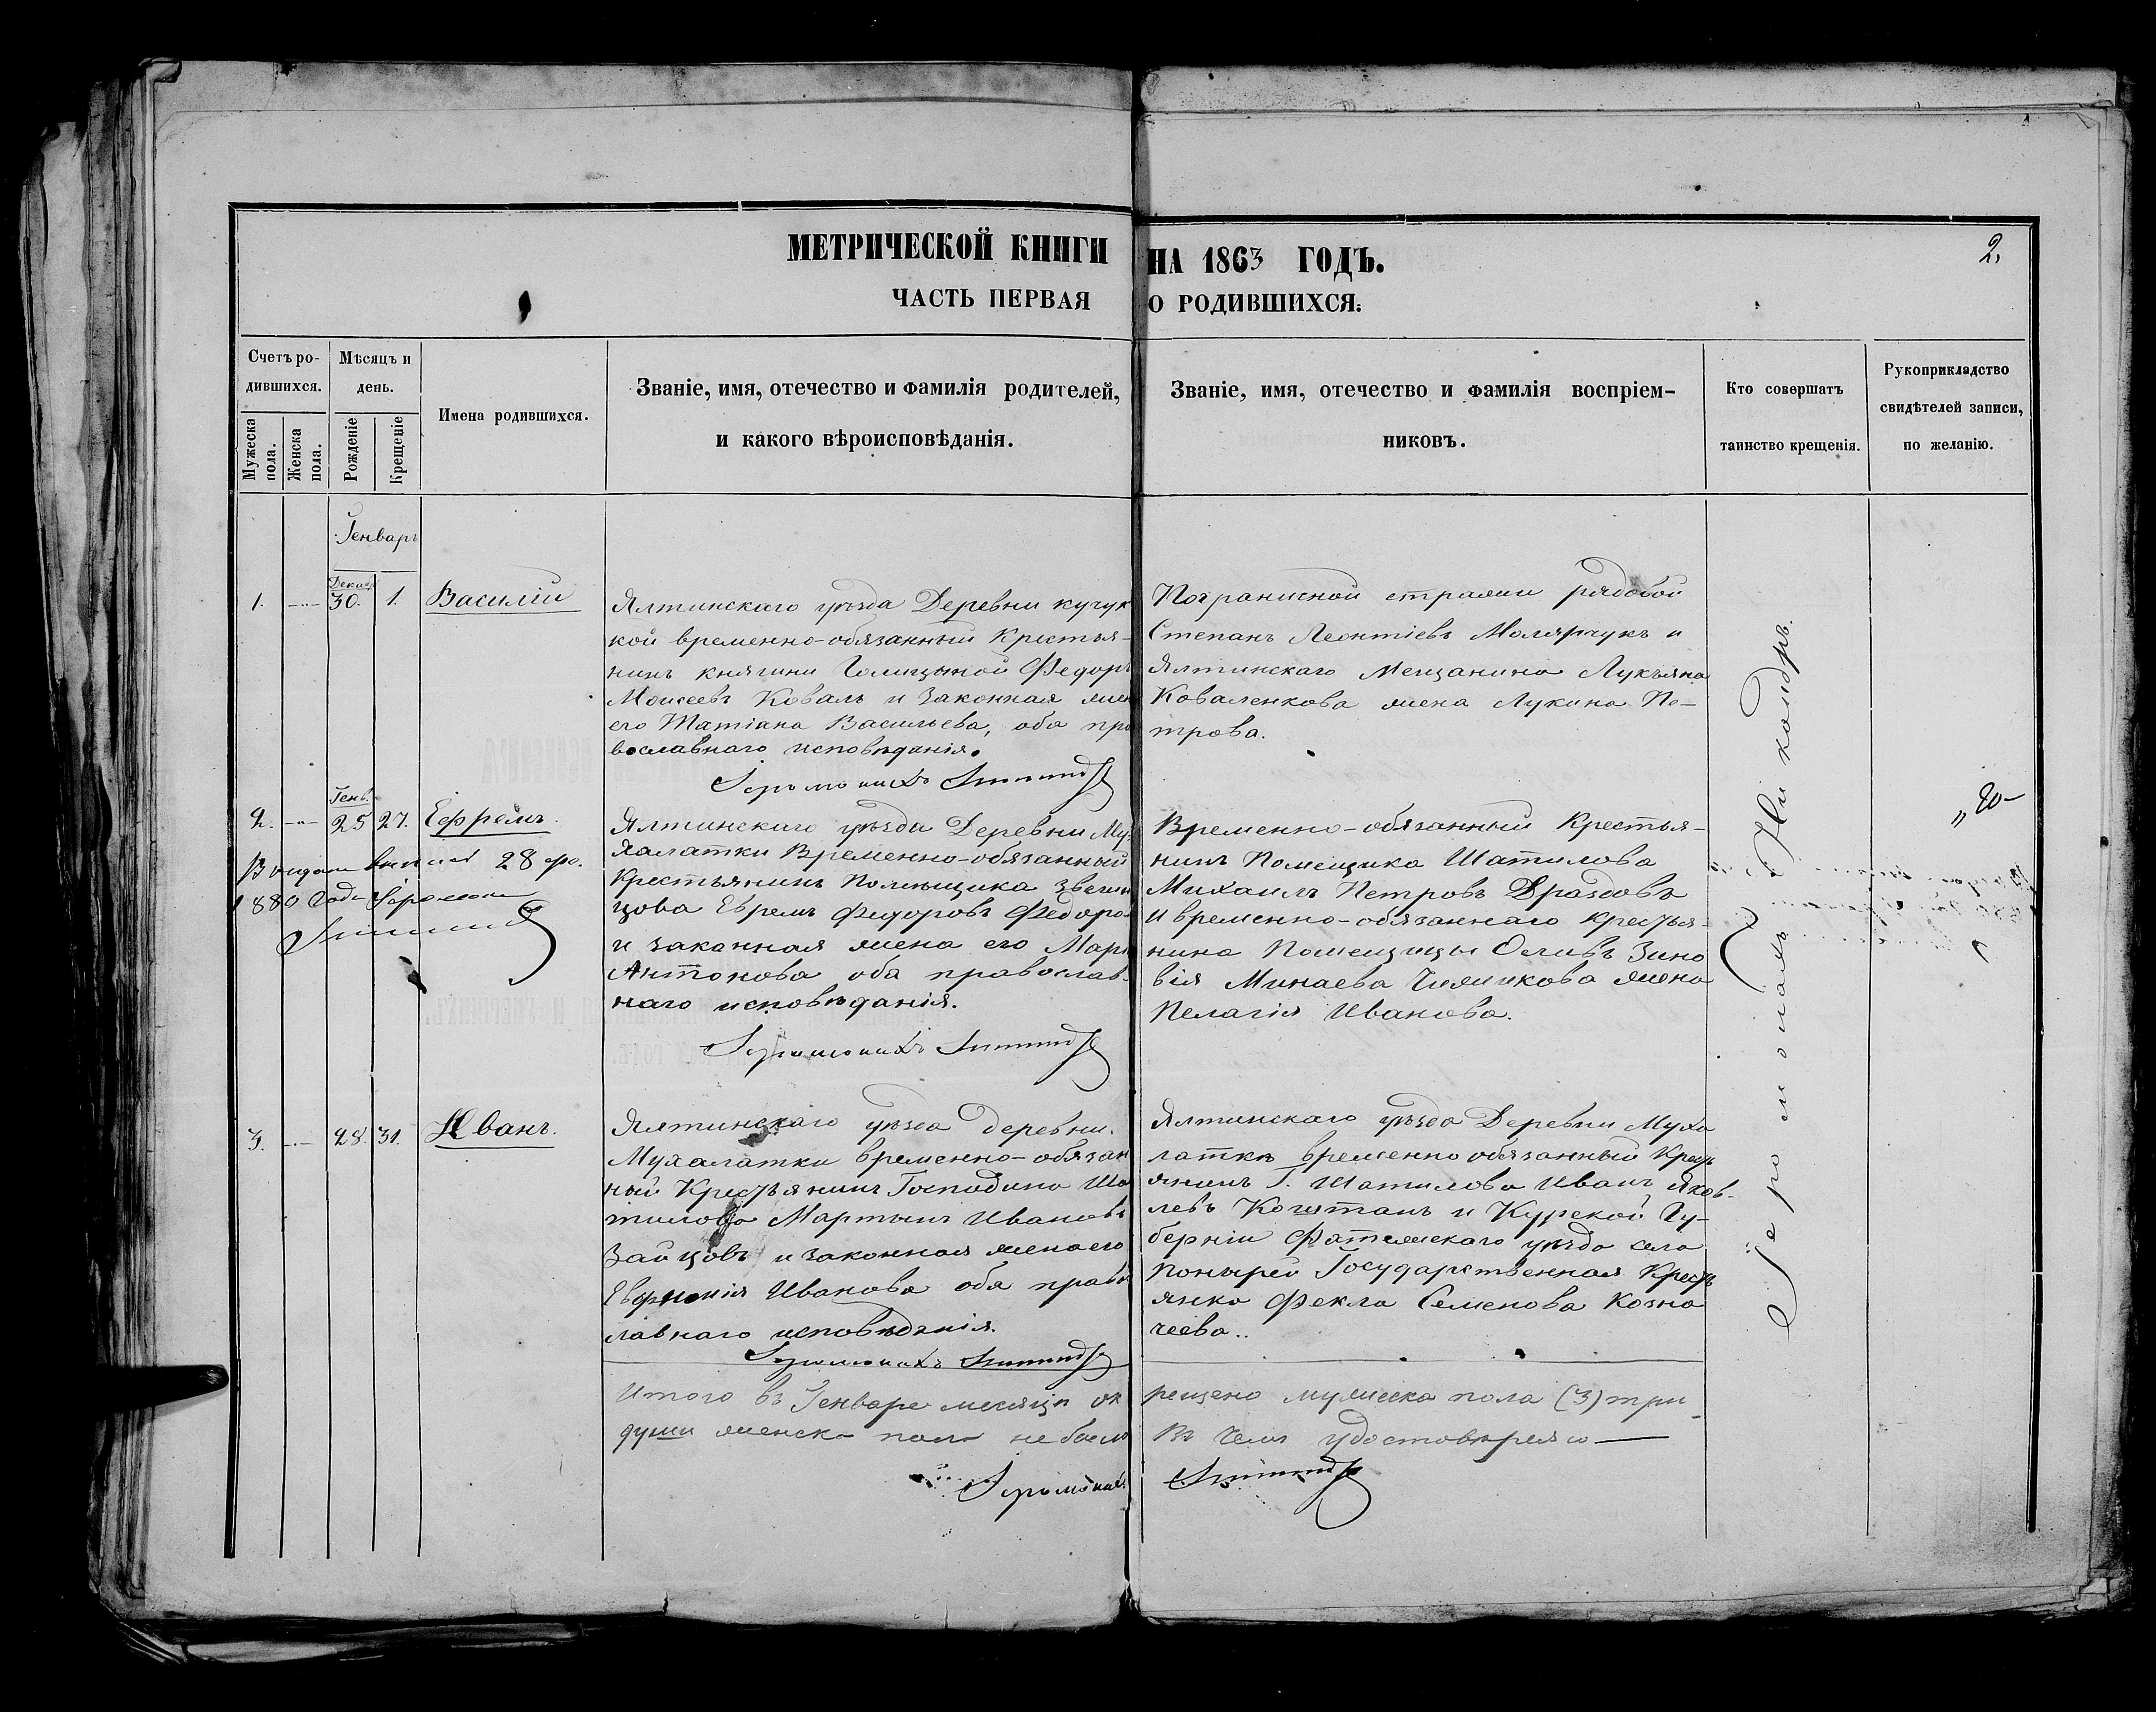 МЕТРИЧЕСКОЙ КНИГИ НА 1863 ГОДЪ.
2.
ЧАСТЬ ПЕРВАЯ О РОДИВШИХСЯ.
Счетъ родившихся.
Мужеска пола.
Женска пола.
Мѣсяцъ и день.
Рожденіе
Крещеніе
Имена родившихся.
Званіе, имя, отечество и фамилія родителей,
и какого вѣроисповѣданія.
Званіе, имя, отечество и фамилія воспріем-
никовъ.
Кто совершатъ
таинство крещенія.
Рукоприкладство
свидѣтелей записи,
по желанію.
Генварь
Декабр
1. 30. 1. Василій
Ялтинскаго уѣзда Деревни кучук
кой временно-обязанный Крестья-
нинъ княгини Голицыной Федоръ
Моисеевъ Коваль и законная жен
его Татіана Васильева, оба пра
вославнаго исповѣданія.
Іеромонахъ
Пограничной стражи рядовой
Степанъ Леонтіевъ Молярчукъ и
Ялтинскаго Мещанина Лукьяна
Коваленкова жена Лукина Пе-
трова.
Генв.
2. 25 27. Ефремъ.
28
1880 года Іеромонах
Ялтинскаго уѣзда Деревни Му-
халатки Временно-обязанный
Крестьянинъ Помѣщика Звегин
цова Ефремъ Федоровъ Федоро
и законная жена его Мари
Антонова оба православ-
наго исповѣданія.
Іеромонахъ
Временно-обязанный Крестья-
нинъ Помещика Шатилова
Михаилъ Петровъ Драздовъ
и временно-обязаннаго крестья-
нина Помещицы Оливъ Зино
вія Минаева Чижикова жена
Пелагія Иванова.
3. 28. 31. Иванъ.
Ялтинскаго уѣзда деревни.
Мухалатки временно-обязан
ный Крестьянинъ Господина Ша
тилова Мартынъ Ивановъ
Зайцовъ и законная жена его
Евфимія Иванова оба право
лавнаго исповѣданія.
Іеромонахъ
Ялтинскаго уѣзда Деревни Муха
латки временно обязанный Крест
янинъ Г. Шатилова Иванъ Яков-
левъ Коштанъ и Курской Гу-
берніи Фатежскаго уѣзда села
Понырей Государственная Крест
янка Фекла Семенова Козна
чеева..
Іеромонахъ Никандръ.
Итого въ Генваре месяцѣ ок рещено мужеска пола (3) три
души женска пола небыло Въ чемъ удостовѣряю
Іеромонахъ